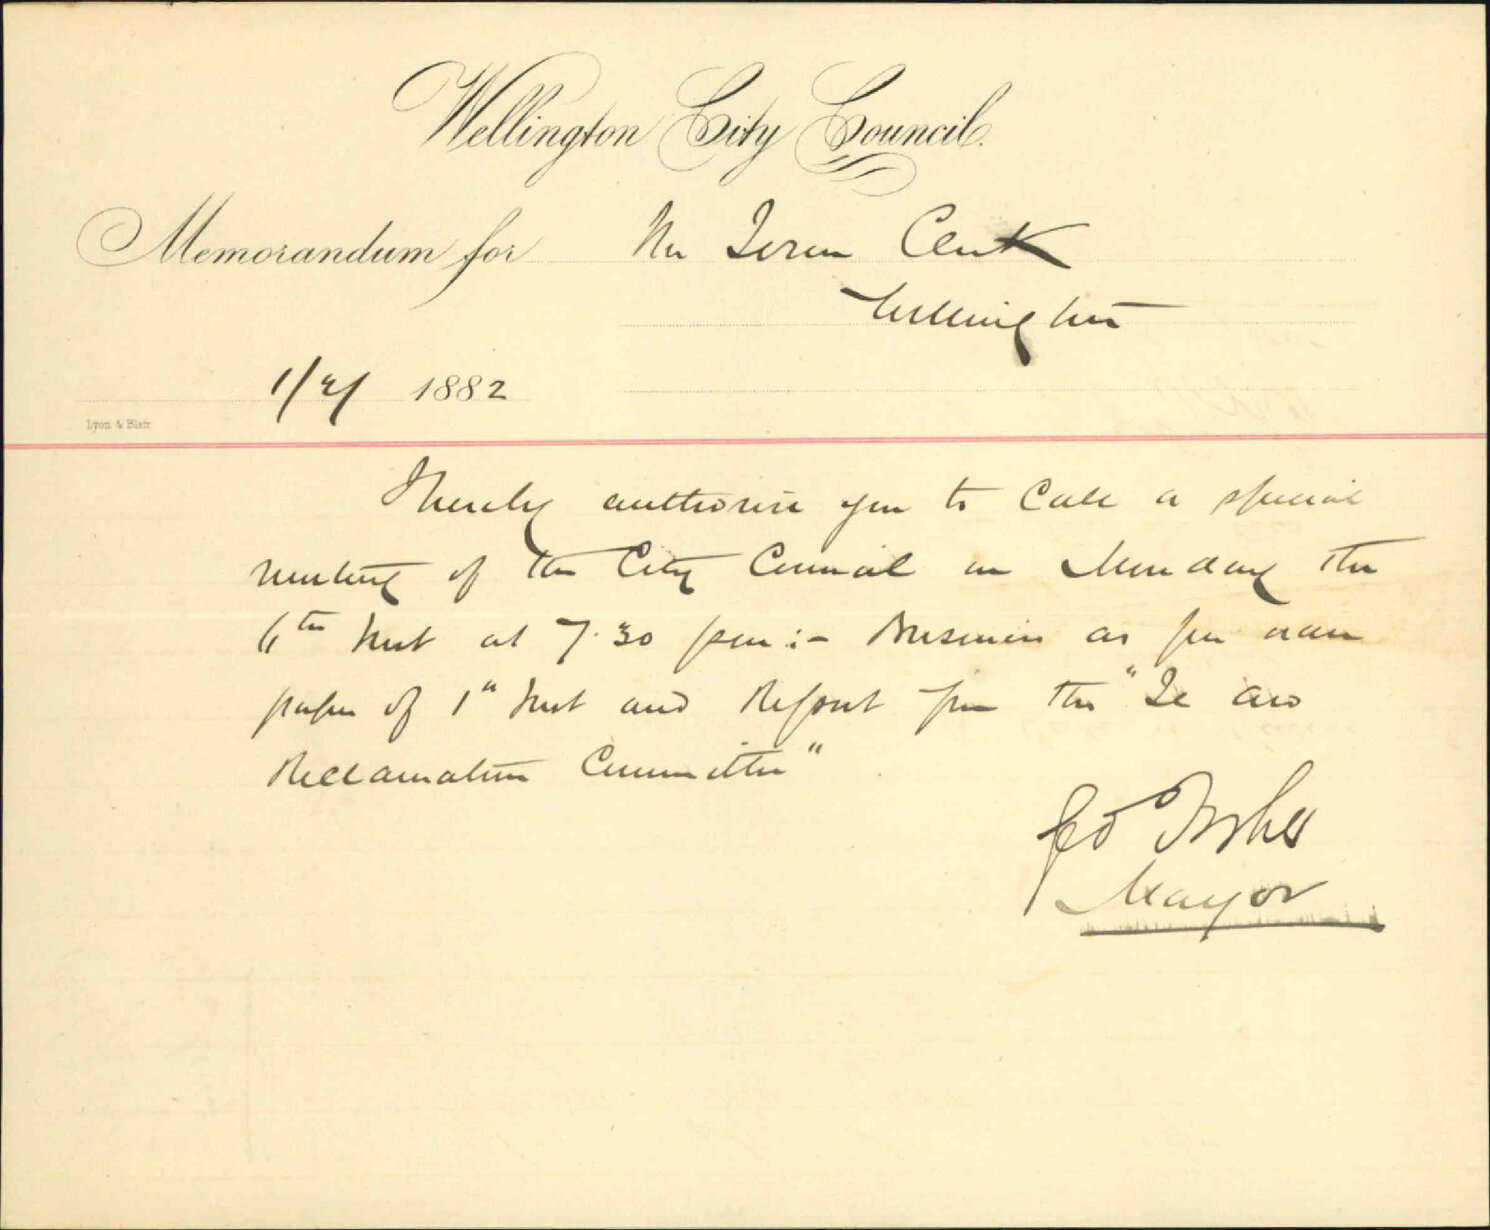 Wellington City Council.
Memorandum for Mr Town Clerk
Wellington
1/2/ 1882
Lyon & Blair
I hereby authorise you to Call a special
meeting of the City Council on Monday the
6th Inst at 7.30 pm :- Business as per
paper of 1st Inst and Report from the "Te Aro
Reclamation Committee"
Geo Fisher
Mayor